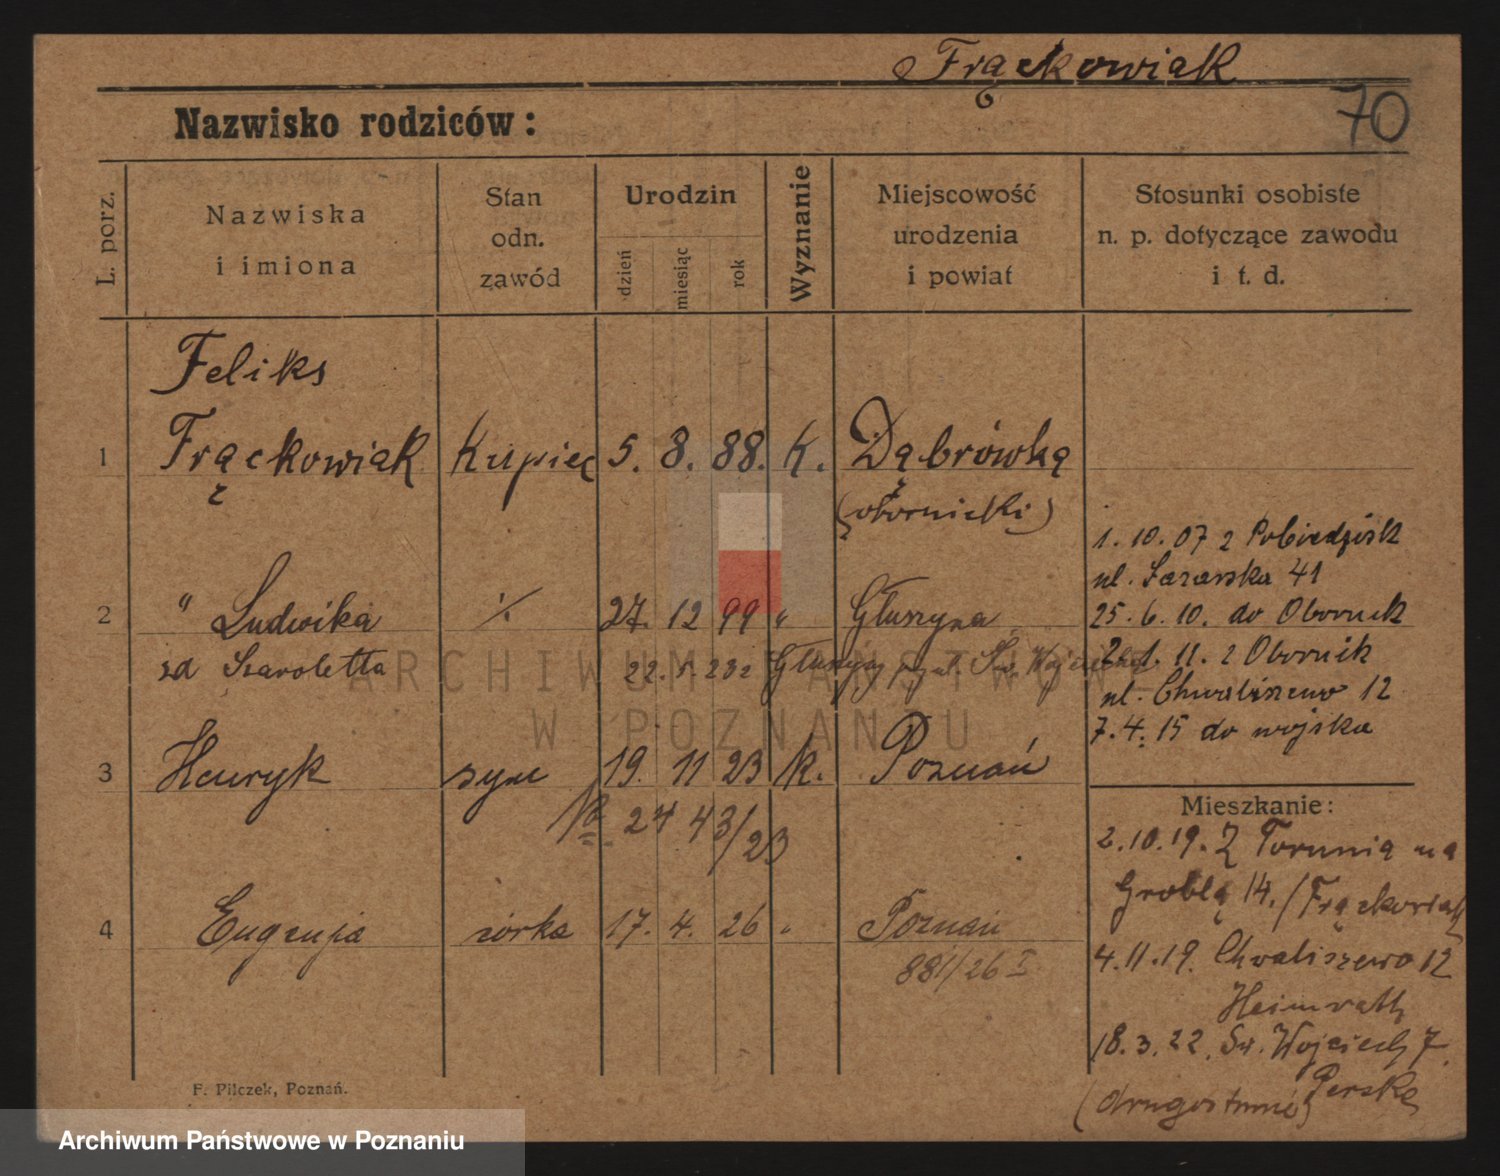 Frąckowiak
70
Nazwisko rodziców:
L. porz.
Nazwiska
i imiona
Stan
odn.
zawód
Urodzin
dzień
miesiąc
rok
Wyznanie
Miejscowość
urodzenia
i powiat
Stosunki osobiste
n. p. dotyczące zawodu
i t. d.
Feliks
1 Frąckowiak Kupiec 5. 8. 88. k. Dąbrówka
(obornicki)
1. 10. 07 z Pobiedzisk
ul. 41
2 " Ludwika ./. 27. 12 99 " Głuszyna
25. 6. 10. do Obornik
zd Szaroletta
22. 5. 23 z Głuszyny
11. z Obornik
ul. Chwaliszewo 12
7. 4. 15 do wojska
3 Henryk syn 19. 11 23 k. Poznań
43/23
Mieszkanie:
2. 10. 19. Z Torunia na
Groblą 14. /Frąckowiak
4 Eugenja córka 17. 4. 26 " Poznań
881/26 I
4. 11. 19. Chwaliszewo 12
Heimrath
18. 3. 22. Św. Wojciech 7
Perske
F. Pilczek, Poznań.
ARCHIWUM PAŃSTWOWE
W POZNANIU
Archiwum Państwowe w Poznaniu